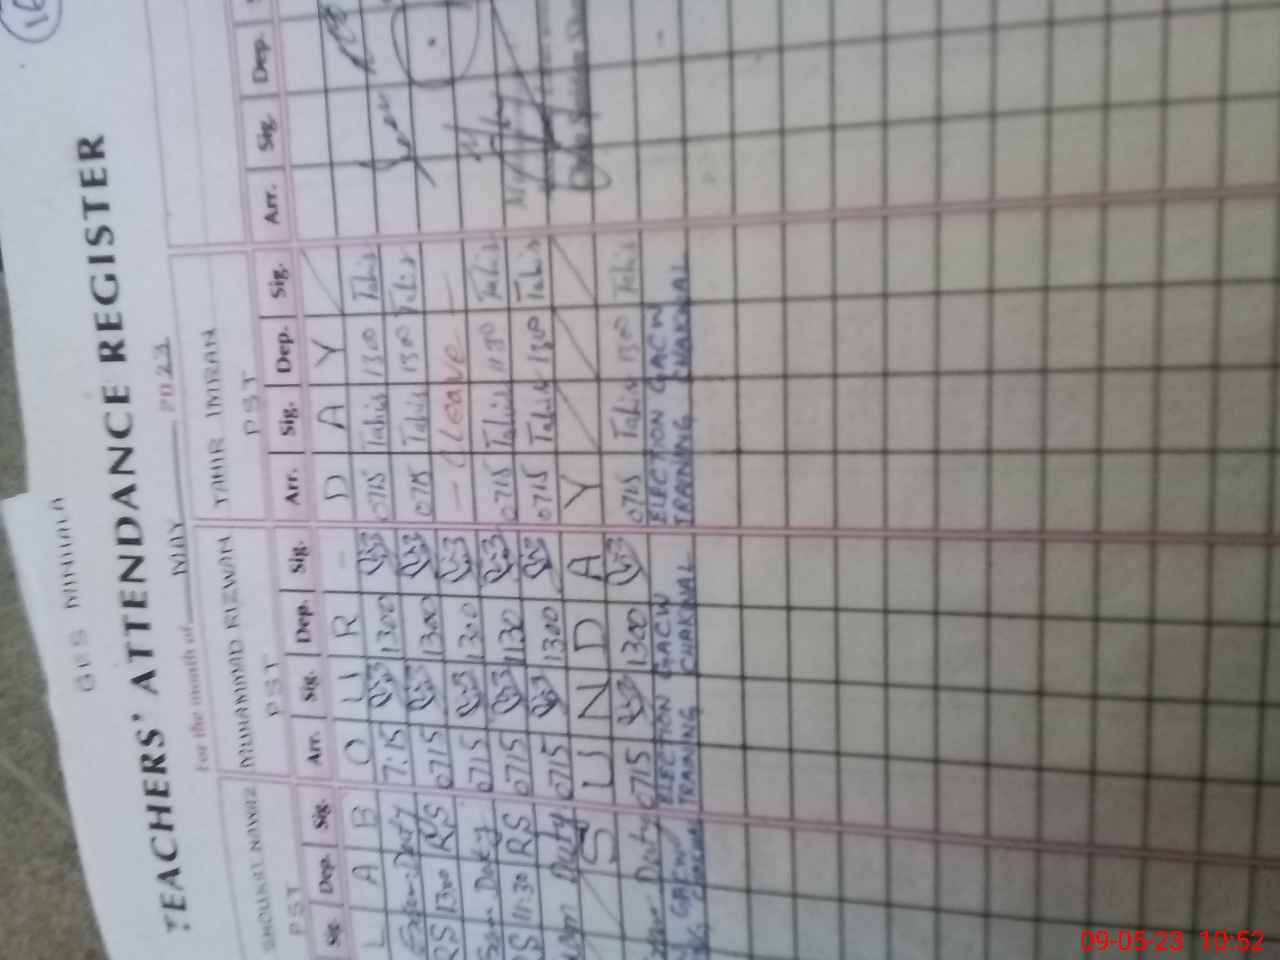 GES
TEACHERS' ATTENDANCE REGISTER
For the month of MAY 2023
SHOUKAT NAWAZ MUHAMMAD RIZWAN TAHIR IMRAN
PST PST PST
Sig. Dep. Sig. Arr. Sig. Dep. Sig. Arr. Sig. Dep. Sig. Arr. Sig. Dep.
L A B O U R D A Y
Exam: Duty 7:15 1300 0715 Tahir 1300 Tahir
RS 1300 RS 0715 1300 0715 Tahir 1300 Tahir
Exam Duty 0715 1300 Leave
RS 11:30 RS 0715 1130 0715 Tahir 1130 Tahir
Exam Duty 0715 1300 0715 Tahir 1300 Tahir
S U N D A Y
Exam Duty 0715 1300 0715 Tahir 1300 Tahir
GACW ELECTION GACW ELECTION GACW
NG CHAKWAL TRAINING CHAKWAL TRAINING CHAKWAL
09-05-23 10:52